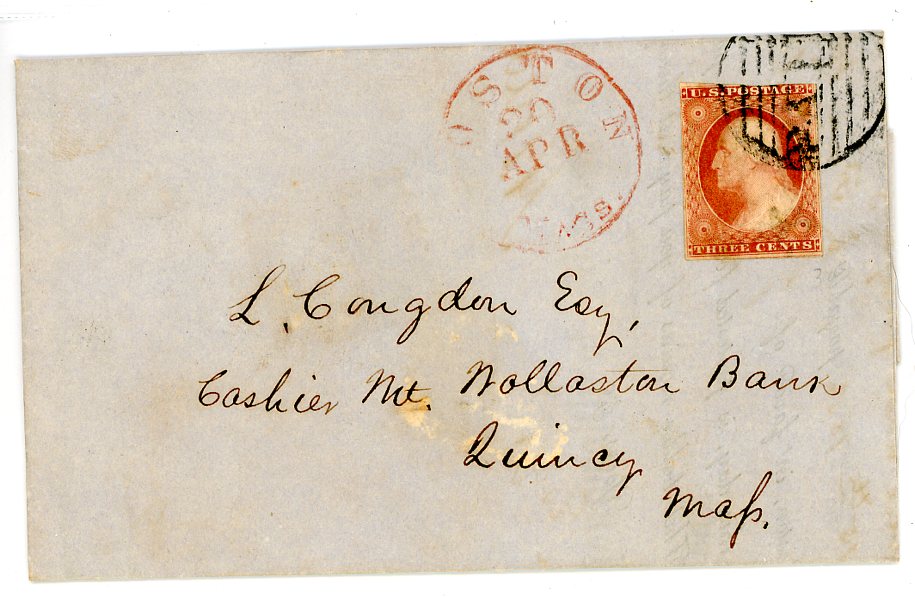 BOSTON
20
APR
Mass.
U.S. POSTAGE
PAID
THREE CENTS
L. Congdon Esq,
Cashier Mt. Wollaston Bank
Quincy
Mass.